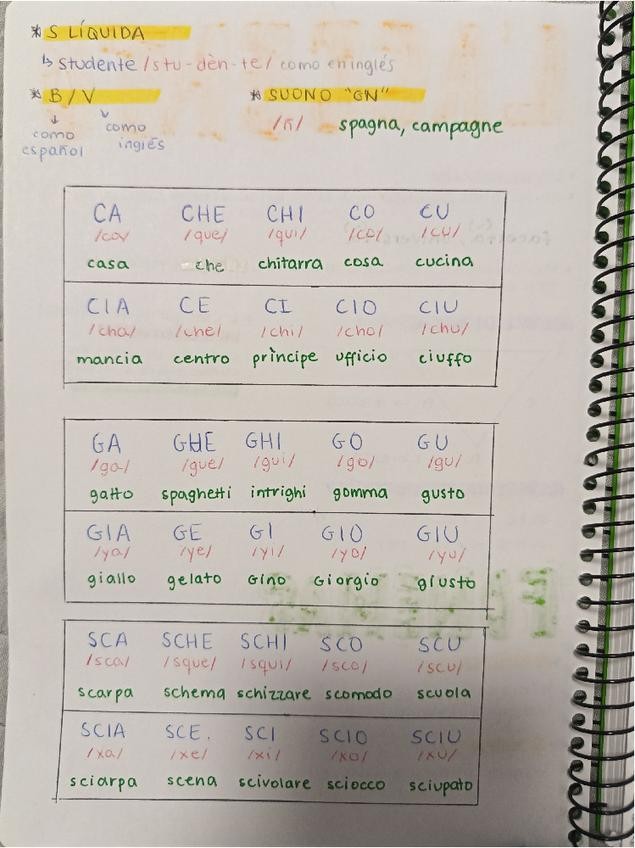 * S LÍQUIDA
↳ studente /stu-dèn-te/ como en inglés
* B/V
* SUONO "GN"
como español
como inglés
/ñ/ spagna, campagne
CA CHE CHI CO CU
/ca/ /que/ /qui/ /co/ /cu/
casa che chitarra cosa cucina
CIA CE CI CIO CIU
/cha/ /che/ /chi/ /cho/ /chu/
mancia centro principe ufficio ciuffo
GA GHE GHI GO GU
/ga/ /gue/ /gui/ /go/ /gu/
gatto spaghetti intrighi gomma gusto
GIA GE GI GIO GIU
/ya/ /ye/ /yi/ /yo/ /yu/
giallo gelato Gino Giorgio giusto
SCA SCHE SCHI SCO SCU
/sca/ /sque/ /squi/ /sco/ /scu/
scarpa schema schizzare scomodo scuola
SCIA SCE. SCI SCIO SCIU
/xa/ /xe/ /xi/ /xo/ /xu/
sciarpa scena scivolare sciocco sciupato